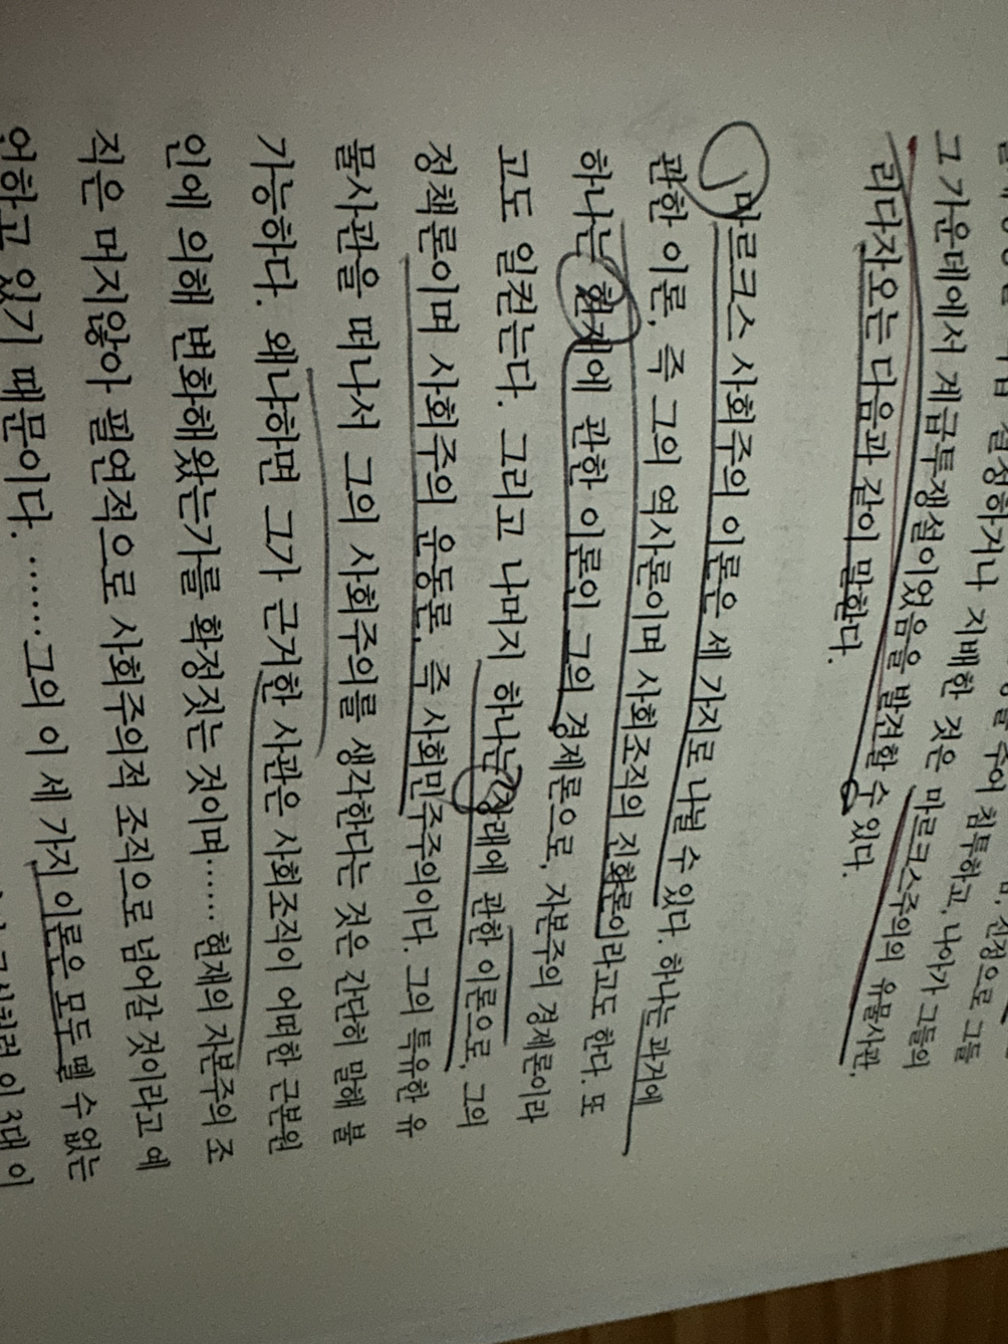 그 가운데에서 계급투쟁설이었음을 발견할 수 있다.
리다자오는 다음과 같이 말한다.
마르크스 사회주의 이론은 세 가지로 나뉠 수 있다. 하나는 과거에
관한 이론, 즉 그의 역사론이며 사회조직의 진화론이라고도 한다. 또
하나는 현재에 관한 이론인 그의 경제론으로, 자본주의 경제론이라
고도 일컫는다. 그리고 나머지 하나는 장래에 관한 이론으로, 그의
정책론이며 사회주의 운동론, 즉 사회민주주의이다. 그의 특유한 유
물사관을 떠나서 그의 사회주의를 생각한다는 것은 간단히 말해 불
가능하다. 왜냐하면 그가 근거한 사관은 사회조직이 어떠한 근본원
인에 의해 변화해왔는가를 확정짓는 것이며…… 현재의 자본주의 조
직은 머지않아 필연적으로 사회주의적 조직으로 넘어갈 것이라고 예
언하고 있기 때문이다. ……그의 이 세 가지 이론은 모두 뗄 수 없는